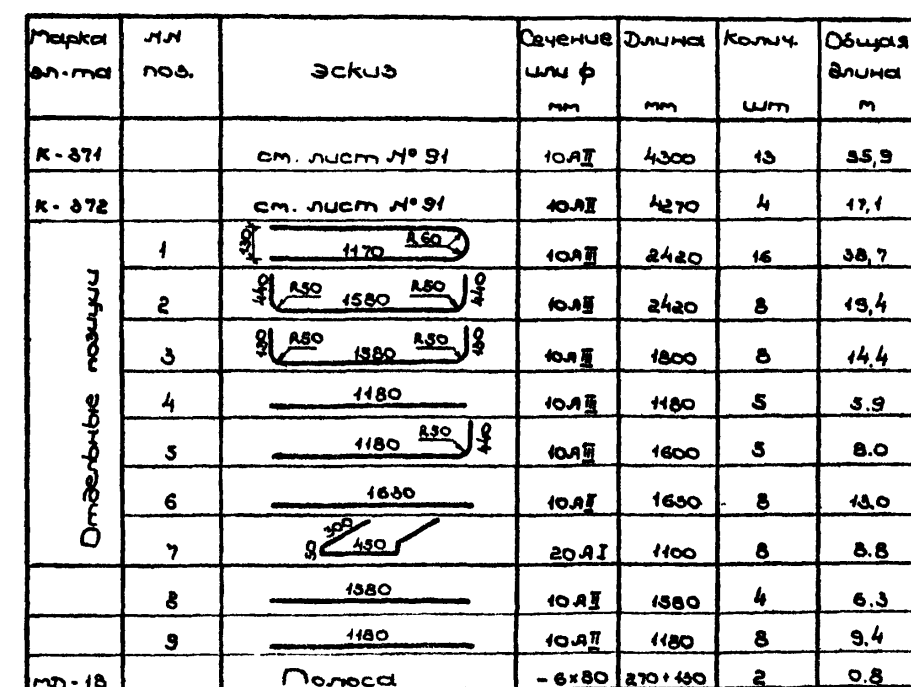 Марка эл-та | NN поз. | эскиз | Сечение или ф мм | Длина мм | Колич. шт | Общая длина м
К-371 | см. лист №91 | 10АII | 4300 | 13 | 55,9
К-372 | см. лист №91 | 10АII | 4270 | 4 | 17,1
Отдельные позиции
1 | 130 1170 R60 | 10АIII | 2420 | 16 | 38,7
2 | 440 R50 1580 R50 440 | 10АIII | 2420 | 8 | 19,4
3 | 130 R50 1580 R50 130 | 10АIII | 1800 | 8 | 14.4
4 | 1180 | 10АIII | 1180 | 5 | 5.9
5 | 1180 R50 440 | 10АIII | 1600 | 5 | 8.0
6 | 1630 | 10АII | 1630 | 8 | 13.0
7 | 50 300 450 | 20АI | 1100 | 8 | 8.8
8 | 1580 | 10АII | 1580 | 4 | 6.3
9 | 1180 | 10АII | 1180 | 8 | 9.4
МД-18 | Полоса | -6×80 | 270+130 | 2 | 0.8